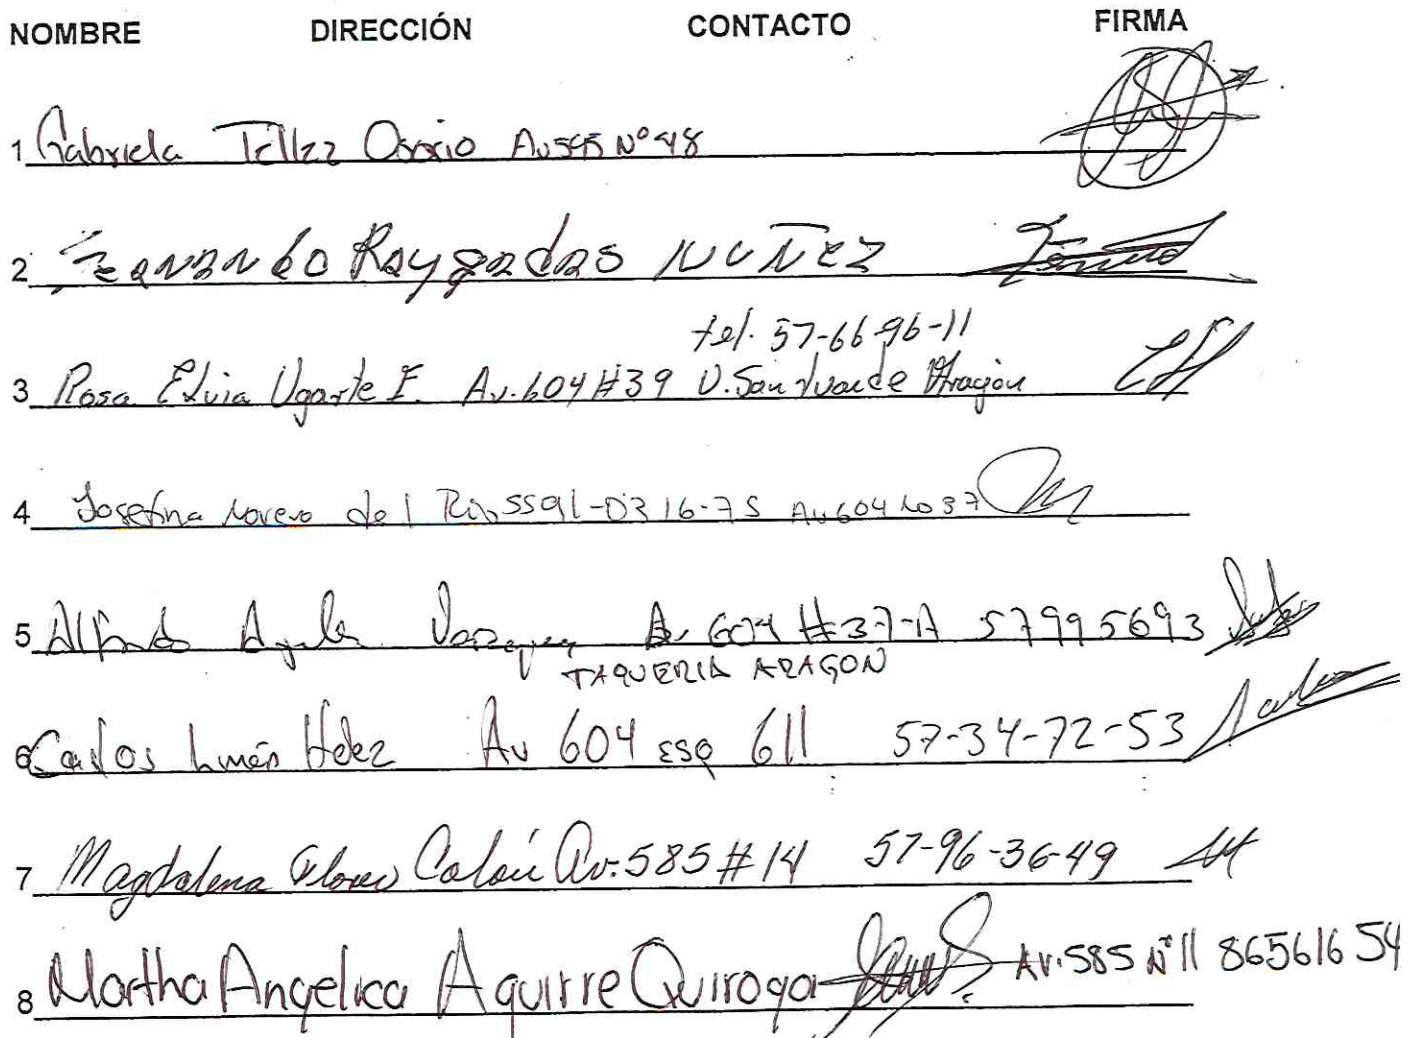 NOMBRE DIRECCIÓN CONTACTO FIRMA
1 Gabriela Tellez Osorio Av 595 Nº 48
2 Fernando Raygadas NUÑEZ
tel. 57-66-96-11
3 Rosa Elvia Ugarte F. Av. 604 #39 U. San Juan de Aragón
4 Josefina Moreno del Rio 5591-0316-75 Av 604 No 37
5 Alfredo Ayala Vazquez Av 604 #37-A 57995693
TAQUERIA ARAGON
6 Carlos Limón Hdez Av 604 ESQ 611 57-34-72-53
7 Magdalena Flores Colín Av. 585 #14 57-96-36-49
8 Martha Angelica Aguirre Quiroga Av. 585 Nº 11 86561654